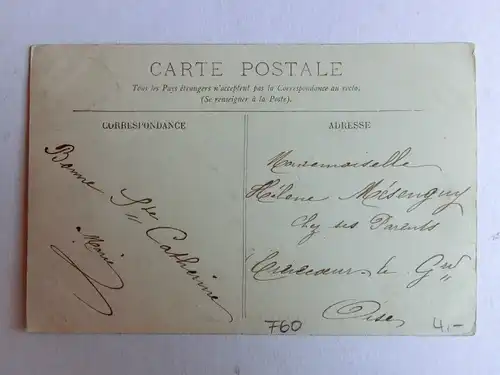 CARTE POSTALE
Tous les Pays étrangers n'acceptent pas la Correspondance au recto.
(Se renseigner à la Poste).
CORRESPONDANCE
ADRESSE
Bonne Ste Catherine
Marie
Mademoiselle
Hélène Mésenguy
chez ses Parents
Crèvecoeur le Gd
Oise
760
4,-